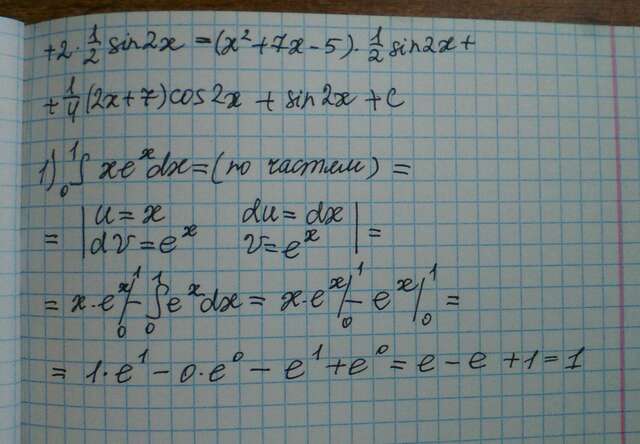 +2·1/2 sin2x = (x²+7x-5)·1/2 sin2x+
+1/4(2x+7)cos2x + sin2x + c
1) ₀¹∫ xeˣdx = (по частям) =
= |u=x du=dx
dv=eˣ v=eˣ| =
= x·eˣ|₀¹ - ₀¹∫eˣdx = x·eˣ|₀¹ - eˣ|₀¹ =
= 1·e¹ - 0·e⁰ - e¹ + e⁰ = e - e + 1 = 1